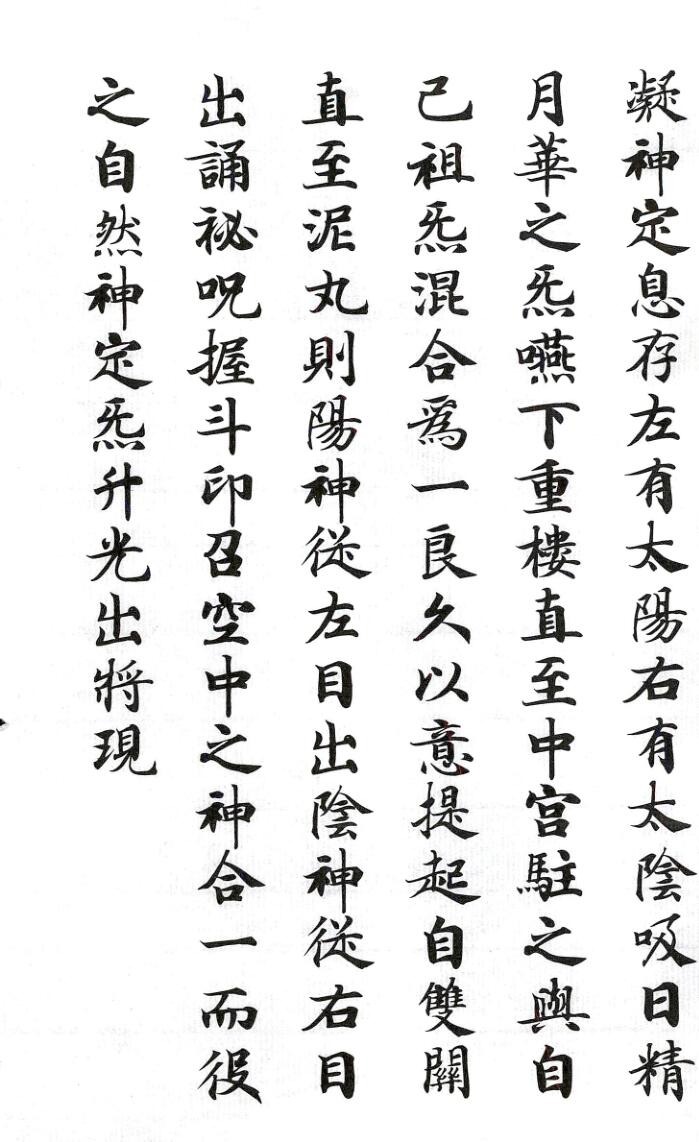 凝神定息存左有太陽右有太陰吸日精
月華之炁嚥下重樓直至中宮駐之與自
己祖炁混合爲一良久以意提起自雙關
直至泥丸則陽神從左目出陰神從右目
出誦祕呪握斗印召空中之神合一而役
之自然神定炁升光出將現